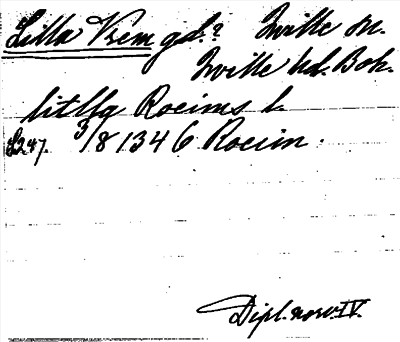 Lilla Vrem gd.? Tville sn.
Tville hd. Boh.
litlhg Rocims l.
s. 247. 3/8 1346 Rocim.
Dipl. norv. IV.